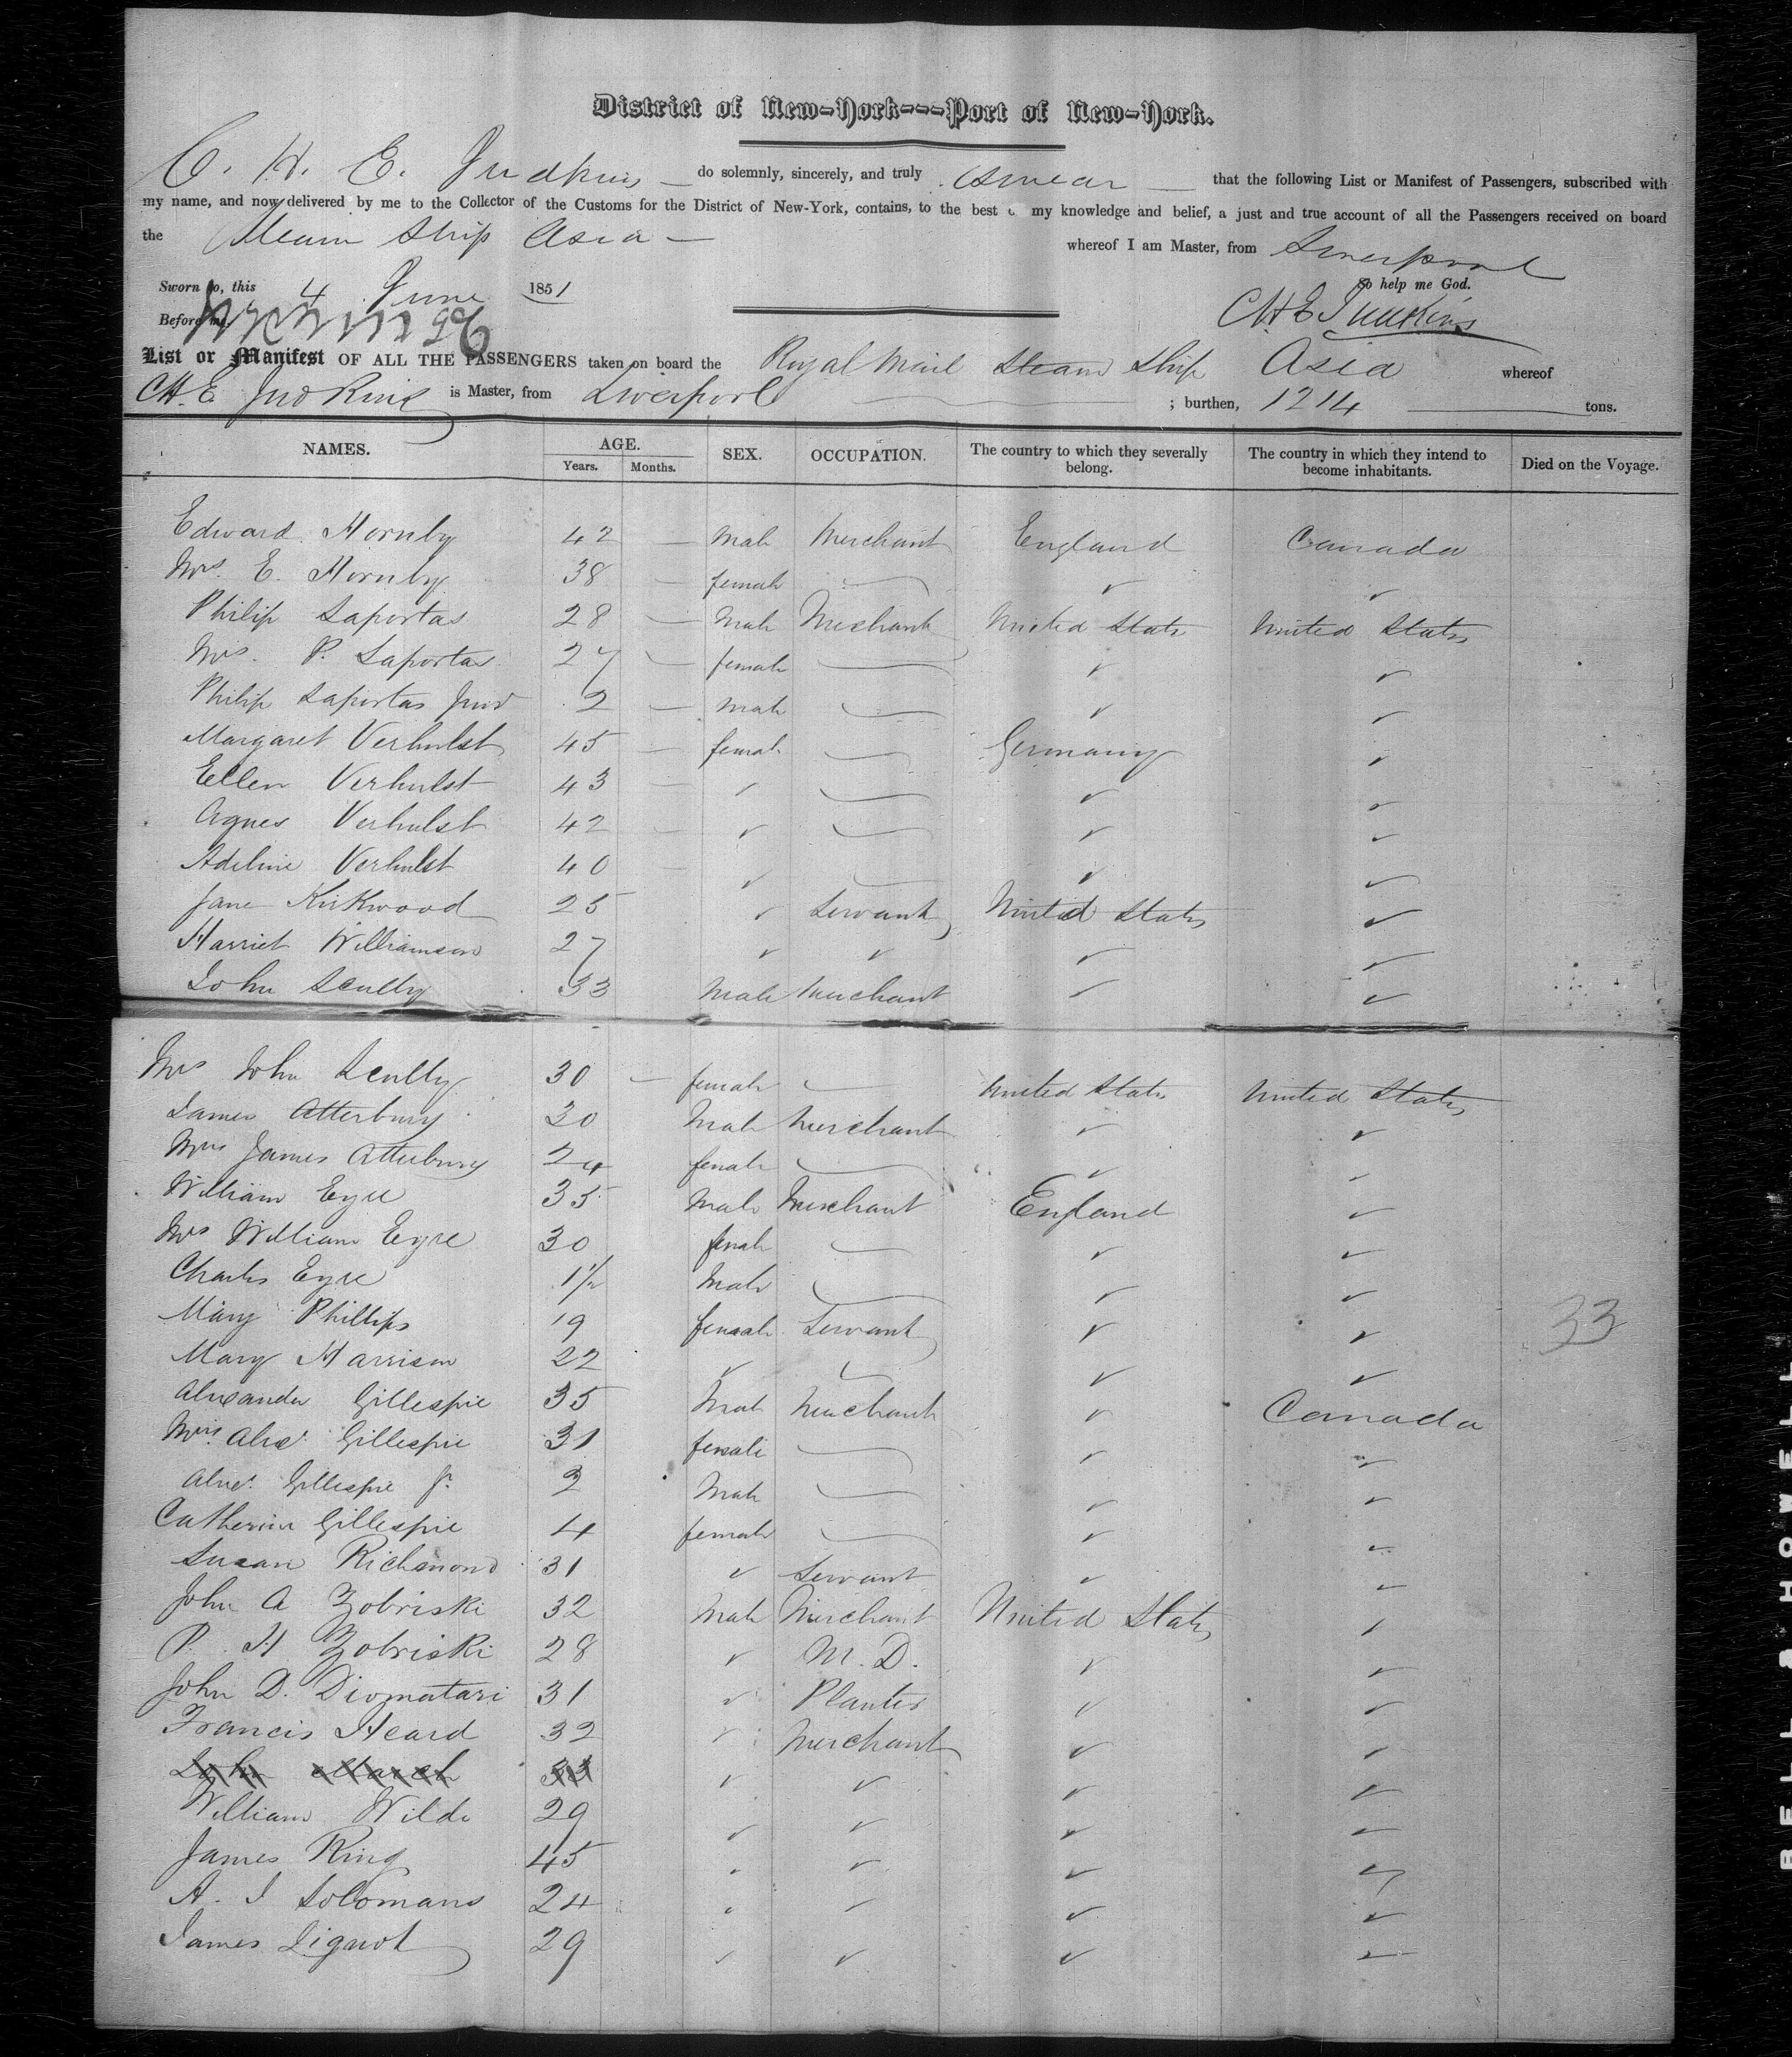 District of New-York---Port of New-York.
C. H. E. Judkins — do solemnly, sincerely, and truly Swear — that the following List or Manifest of Passengers, subscribed with
my name, and now delivered by me to the Collector of the Customs for the District of New-York, contains, to the best o my knowledge and belief, a just and true account of all the Passengers received on board
the Steam Ship Asia — whereof I am Master, from Liverpool
Sworn to, this 4 June 1851 So help me God.
Before me, CHE Judkins
List or Manifest OF ALL THE PASSENGERS taken on board the Royal Mail Steam Ship Asia whereof
CH.E Judkins is Master, from Liverpool ; burthen, 1214 tons.
NAMES. AGE. Years. Months. SEX. OCCUPATION. The country to which they severally belong. The country in which they intend to become inhabitants. Died on the Voyage.
Edward Hornby 42 — Male Merchant England Canada
Mrs. E. Hornby 38 — female — ✓ ✓
Philip Laportas 28 — Male Merchant United States United States
Mrs. P. Laportas 27 — female — ✓ ✓
Philip Laportas Junr 2 — Male — ✓ ✓
Margaret Verhulst 45 — female — Germany ✓
Ellen Verhulst 43 — ✓ — ✓ ✓
Agnes Verhulst 42 — ✓ — ✓ ✓
Adeline Verhulst 40 — ✓ — ✓ ✓
Jane Kirkwood 25 ✓ Servant United States ✓
Harriet Williamson 27 ✓ ✓ ✓ ✓
John Scully 33 Male Merchant ✓ ✓
Mrs John Scully 30 — female — United States United States
James Atterbury 30 Male Merchant ✓ ✓
Mrs James Atterbury 24 female — ✓ ✓
William Eyre 35 Male Merchant England ✓
Mrs William Eyre 30 female — ✓ ✓
Charles Eyre 1½ Male — ✓ ✓
Mary Phillips 19 female Servant ✓ ✓
33
Mary Harrison 22 ✓ ✓ ✓ ✓
Alexander Gillespie 35 Male Merchant ✓ Canada
Mrs. Alexr. Gillespie 31 female — ✓ ✓
Alexr. Gillespie Jr. 2 Male — ✓ ✓
Catherine Gillespie 4 female — ✓ ✓
Susan Richmond 31 ✓ Servant ✓ ✓
John A Zobriski 32 Male Merchant United States ✓
P. H Zobriski 28 ✓ M.D. ✓ ✓
John D. Diomatari 31 ✓ Planter ✓ ✓
Francis Heard 32 ✓ Merchant ✓ ✓
John 33 ✓ ✓ ✓ ✓
William Wilde 29 ✓ ✓ ✓ ✓
James King 45 ✓ ✓ ✓ ✓
A. I Solomans 24 ✓ ✓ ✓ ✓
James 29 ✓ ✓ ✓ ✓
BELL & HOWELL